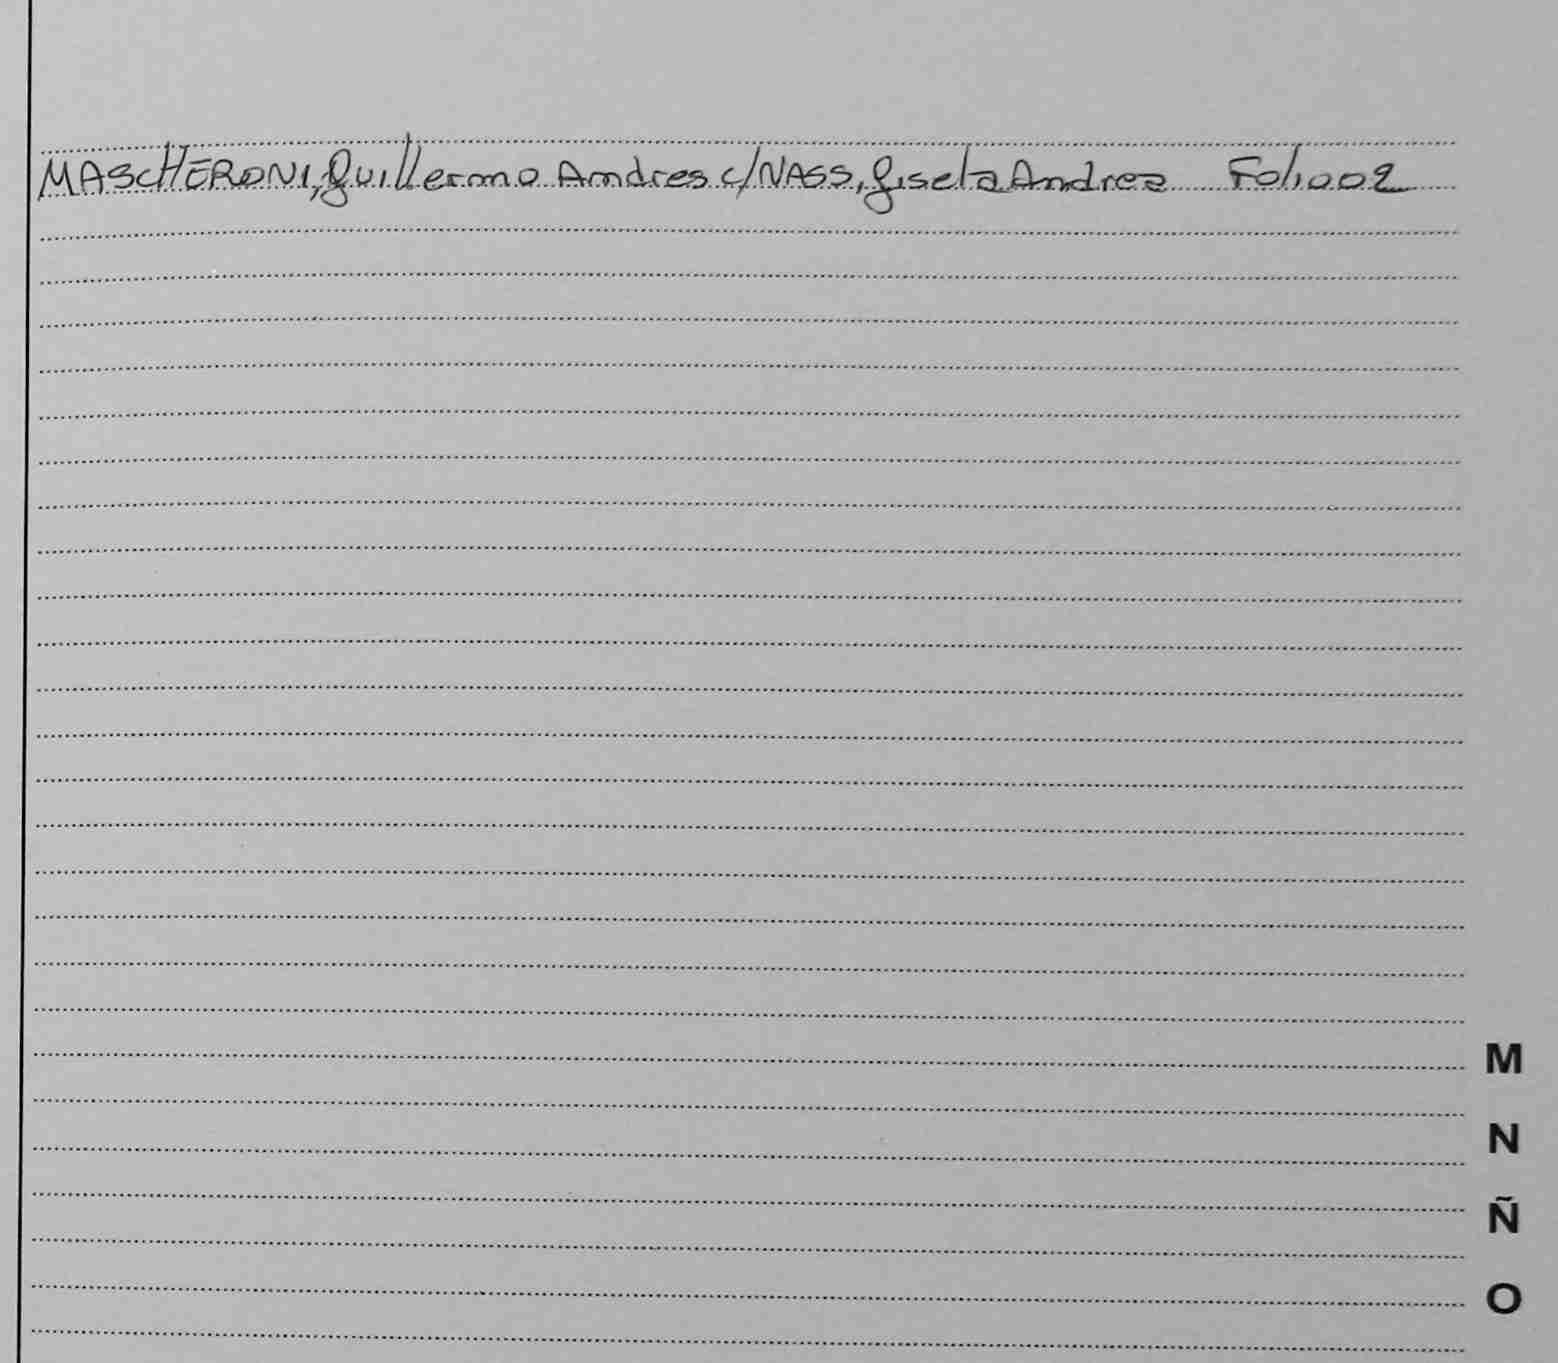 MASCHERONI, Guillermo Andres c/ NASS, Gisela Andrea Folio 002
M
N
Ñ
O